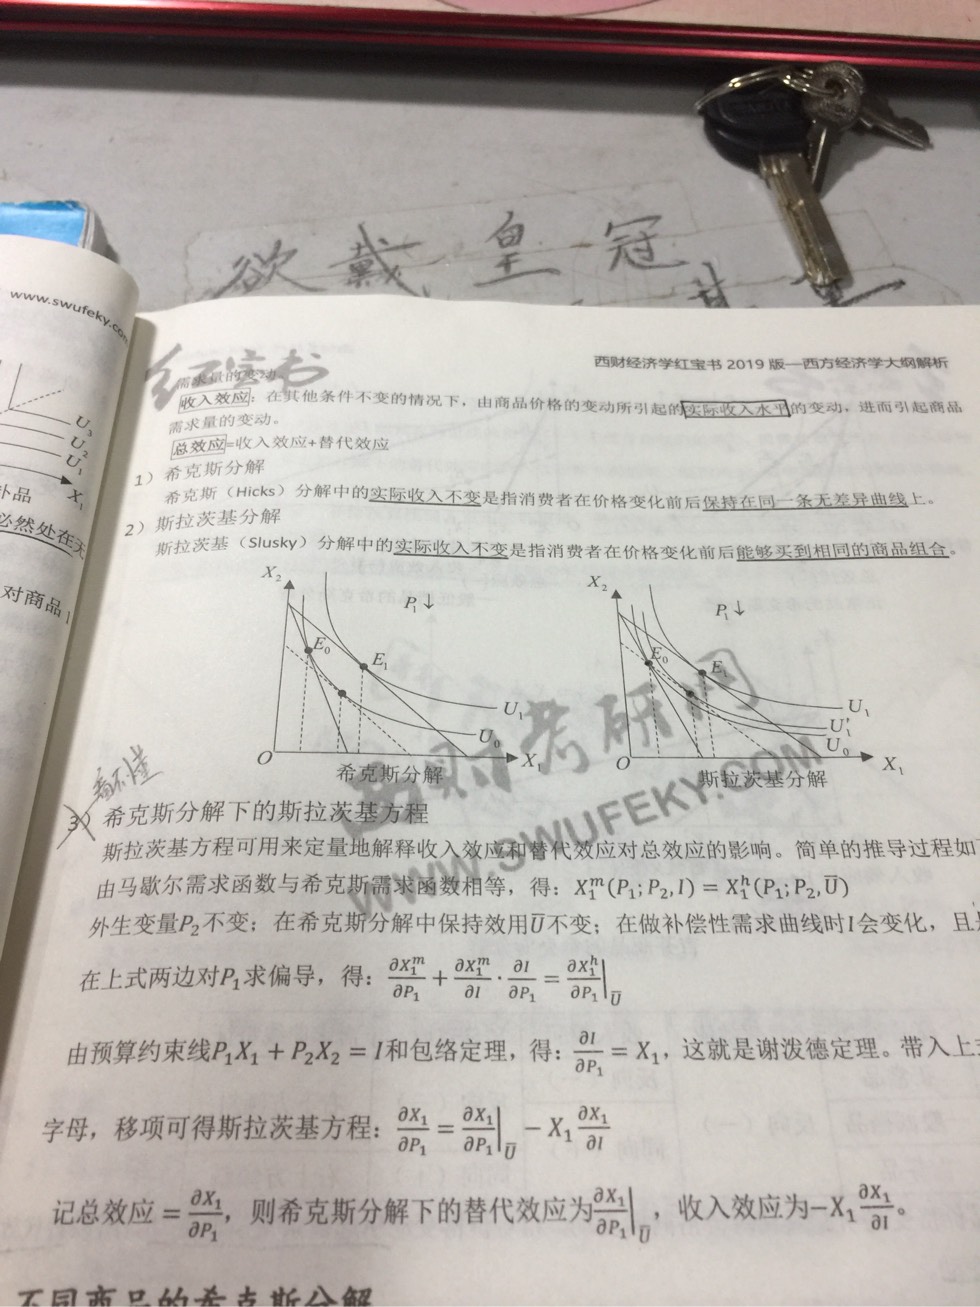 欲戴皇冠
www.swufeky.co
红宝书
西财经济学红宝书 2019 版—西方经济学大纲解析
需求量的变动
收入效应：在其他条件不变的情况下，由商品价格的变动所引起的实际收入水平的变动，进而引起商品
需求量的变动。
总效应=收入效应+替代效应
1）希克斯分解
希克斯（Hicks）分解中的实际收入不变是指消费者在价格变化前后保持在同一条无差异曲线上。
2）斯拉茨基分解
斯拉茨基（Slusky）分解中的实际收入不变是指消费者在价格变化前后能够买到相同的商品组合。
U₃
U₂
U₁
X₁
补品
必然处在无
对商品1
X₂ P₁↓ E₀ E₁ U₁ U₀ O X₁
希克斯分解
X₂ P₁↓ E₀ E₁ U₁ U₁' U₀ O X₁
斯拉茨基分解
西财考研网
WWW.SWUFEKY.COM
看不懂
3）希克斯分解下的斯拉茨基方程
斯拉茨基方程可用来定量地解释收入效应和替代效应对总效应的影响。简单的推导过程如
由马歇尔需求函数与希克斯需求函数相等，得：X₁ᵐ(P₁; P₂, I) = X₁ʰ(P₁; P₂, Ū)
外生变量P₂不变；在希克斯分解中保持效用Ū不变；在做补偿性需求曲线时I会变化，且
在上式两边对P₁求偏导，得：∂X₁ᵐ/∂P₁ + ∂X₁ᵐ/∂I · ∂I/∂P₁ = ∂X₁ʰ/∂P₁|Ū
由预算约束线P₁X₁ + P₂X₂ = I和包络定理，得：∂I/∂P₁ = X₁，这就是谢泼德定理。带入上
字母，移项可得斯拉茨基方程：∂X₁/∂P₁ = ∂X₁/∂P₁|Ū − X₁ ∂X₁/∂I
记总效应 = ∂X₁/∂P₁，则希克斯分解下的替代效应为∂X₁/∂P₁|Ū，收入效应为−X₁ ∂X₁/∂I。
不同商品的希克斯分解